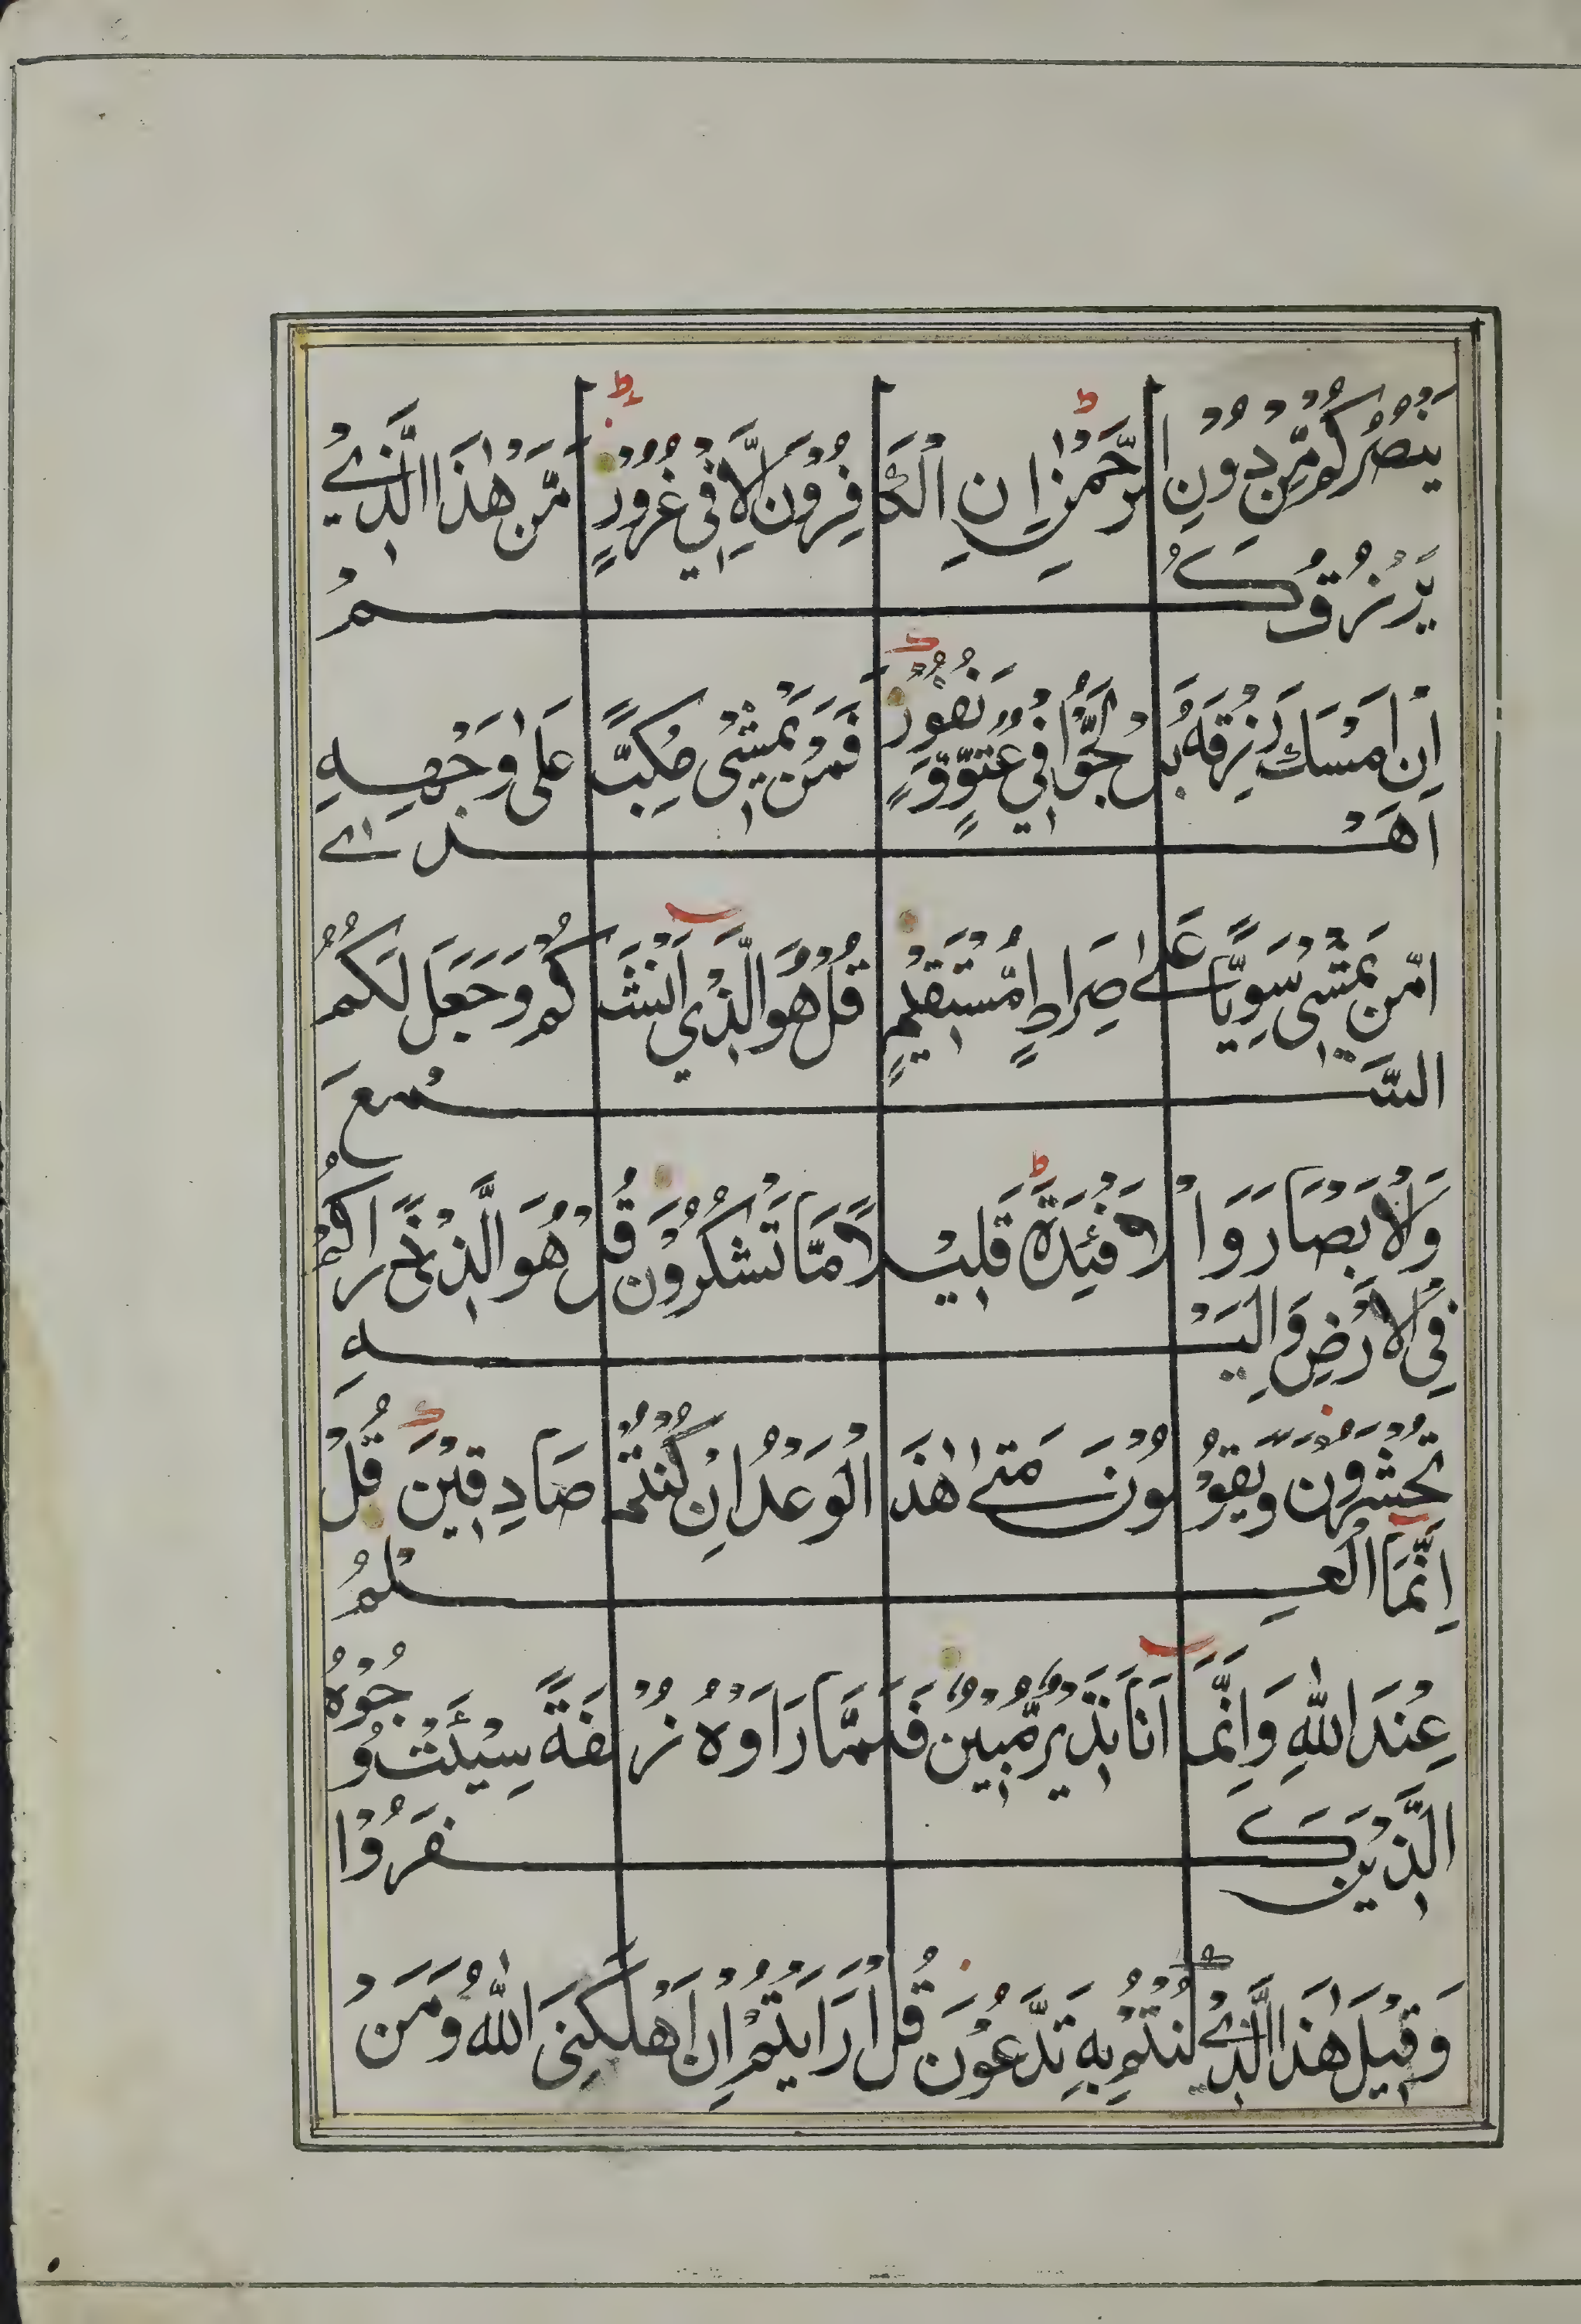 يَنْصُرُكُمْ مِّنْ دُوْنِ الرَّحْمٰنِ اِنِ الْكَافِرُوْنَ اِلَّا فِيْ غُرُوْرٍ اَمَّنْ هٰذَا الَّذِيْ
يَرْزُقُكُمْ
اِنْ اَمْسَكَ رِزْقَهُ بَلْ لَّجُّوْا فِيْ عُتُوٍّ وَّنُفُوْرٍ اَفَمَنْ يَّمْشِيْ مُكِبًّا عَلٰى وَجْهِهِ
اَهْدٰى
اَمَّنْ يَمْشِيْ سَوِيًّا عَلٰى صِرَاطٍ مُّسْتَقِيْمٍ قُلْ هُوَ الَّذِيْ اَنْشَاَكُمْ وَجَعَلَ لَكُمُ
السَّمْعَ
وَالْاَبْصَارَ وَالْاَفْئِدَةَ قَلِيْلًا مَّا تَشْكُرُوْنَ قُلْ هُوَ الَّذِيْ ذَرَاَكُمْ
فِي الْاَرْضِ وَاِلَيْهِ
تُحْشَرُوْنَ وَيَقُوْلُوْنَ مَتٰى هٰذَا الْوَعْدُ اِنْ كُنْتُمْ صَادِقِيْنَ قُلْ
اِنَّمَا الْعِلْمُ
عِنْدَ اللّٰهِ وَاِنَّمَا اَنَا نَذِيْرٌ مُّبِيْنٌ فَلَمَّا رَاَوْهُ زُلْفَةً سِيْئَتْ وُجُوْهُ
الَّذِيْنَ كَفَرُوْا
وَقِيْلَ هٰذَا الَّذِيْ كُنْتُمْ بِهِ تَدَّعُوْنَ قُلْ اَرَاَيْتُمْ اِنْ اَهْلَكَنِيَ اللّٰهُ وَمَنْ